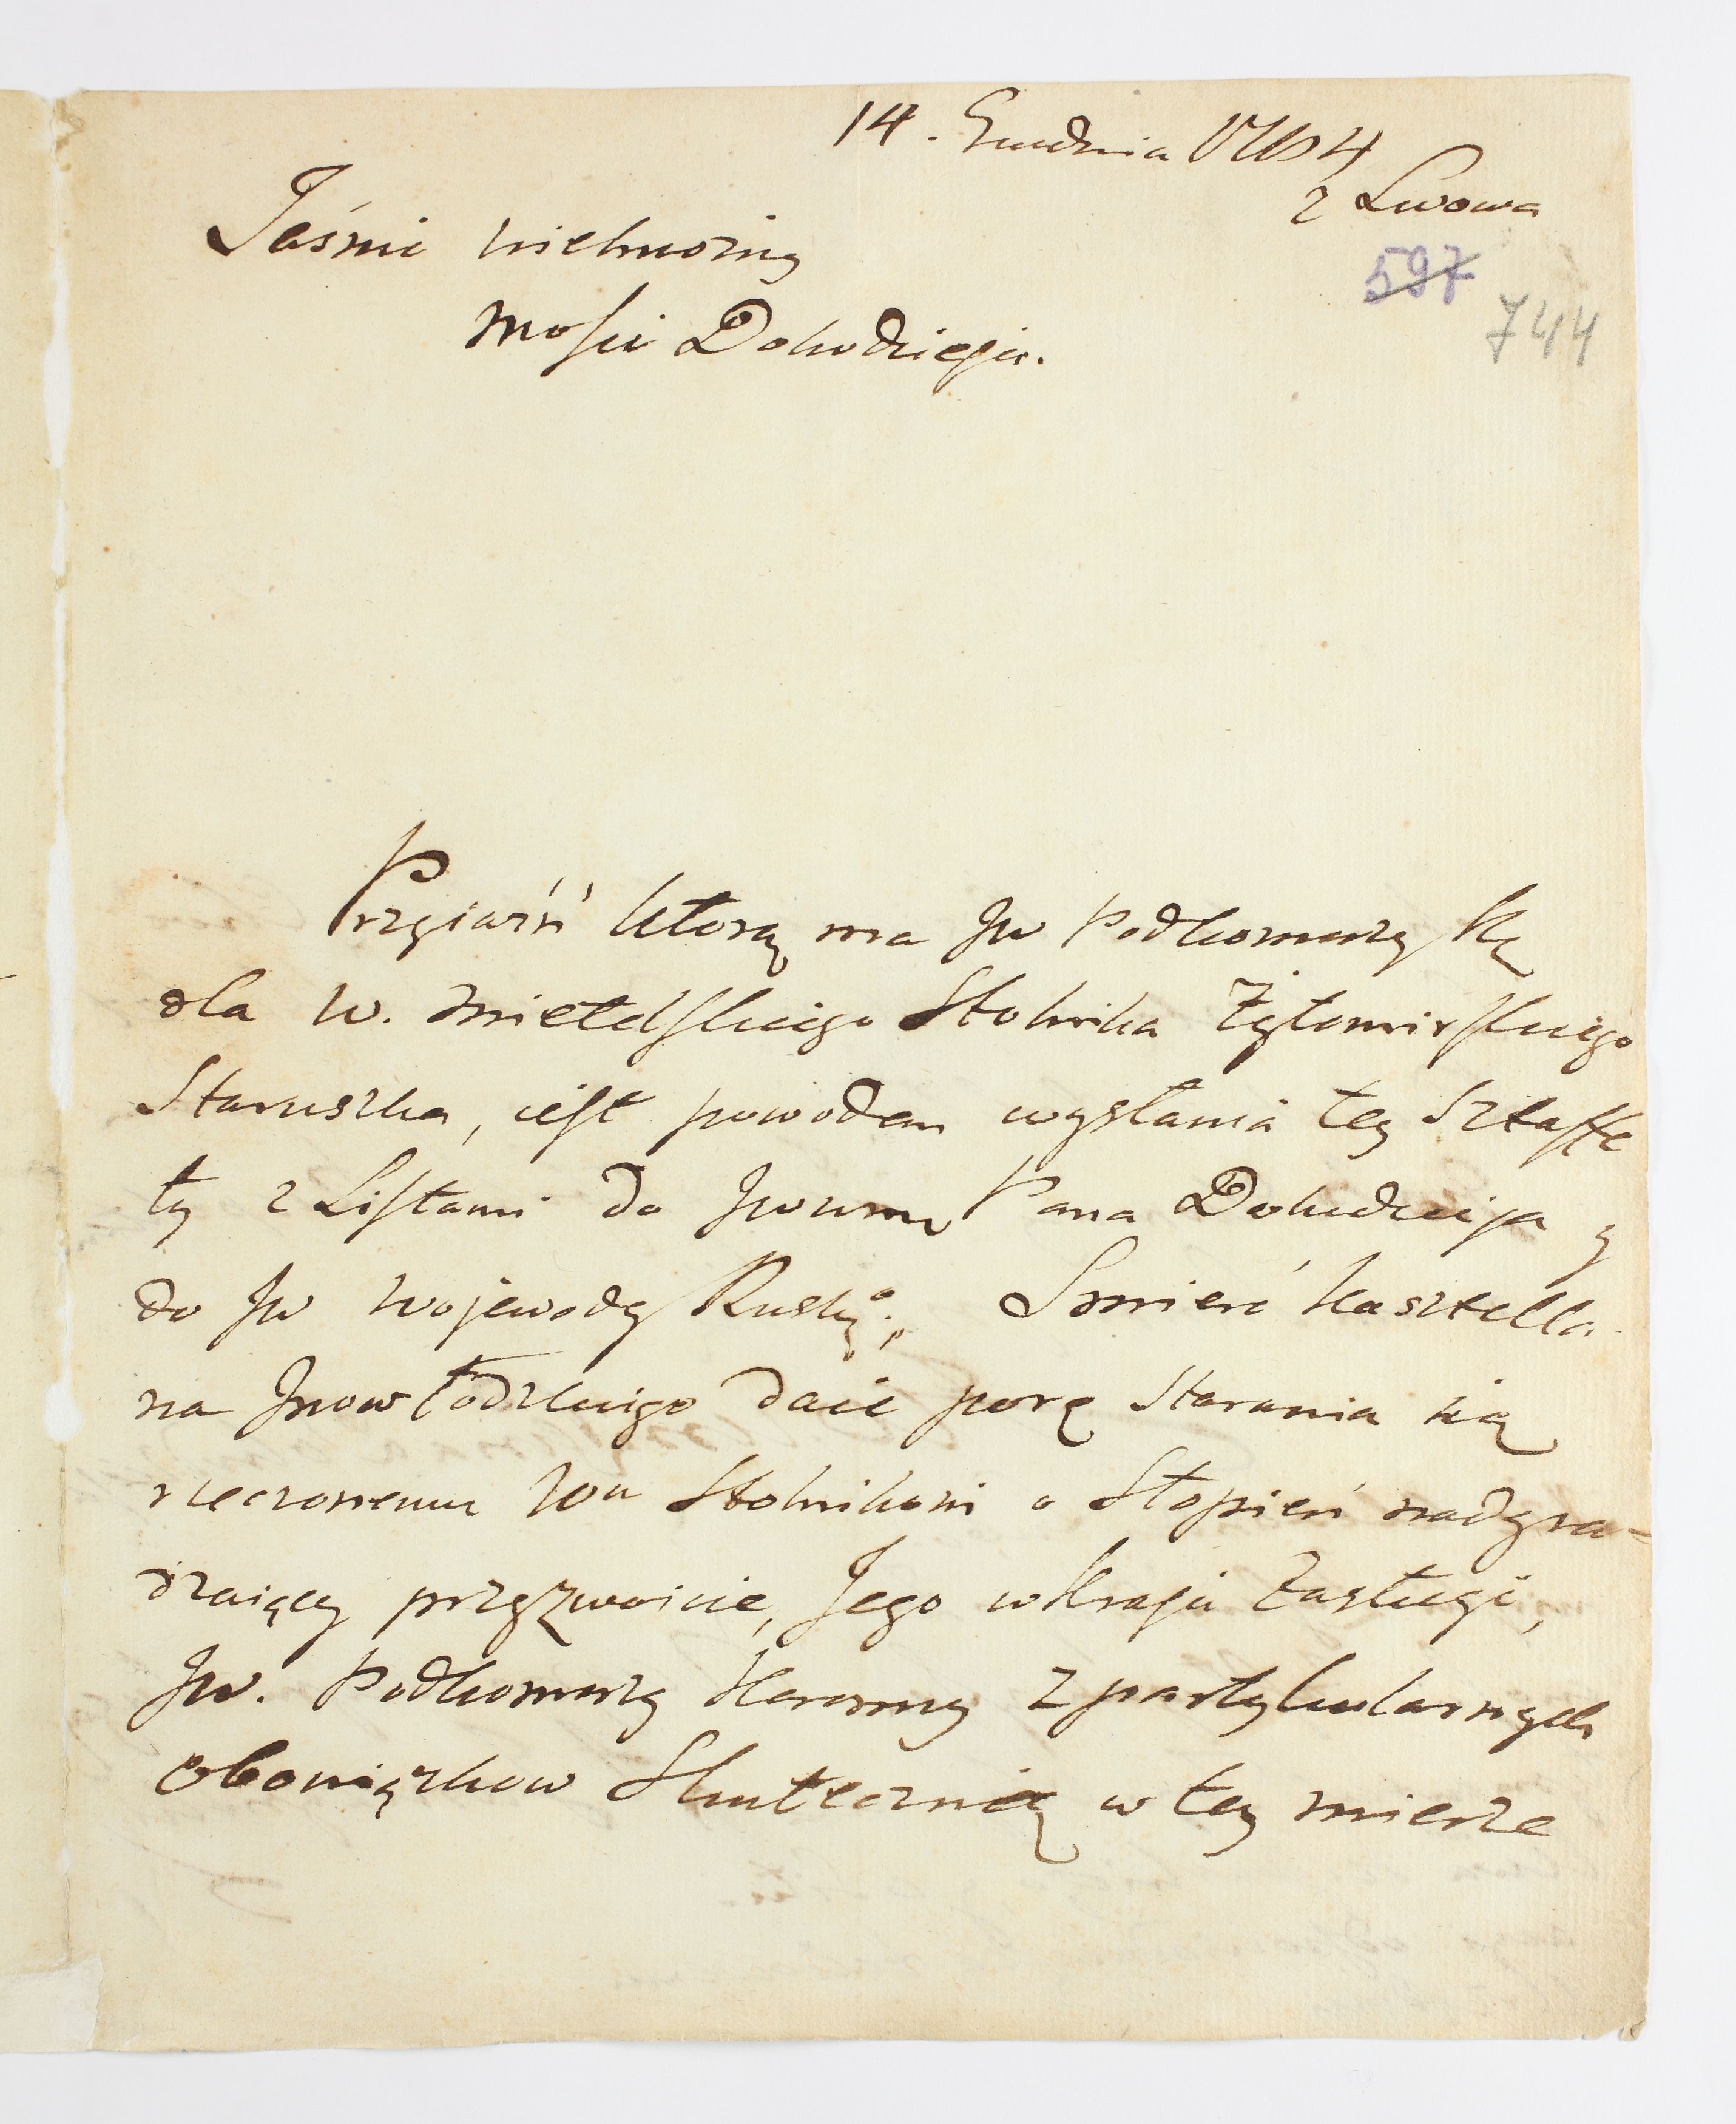 14. Grudnia 1784
z Lwowa
597
744
Jaśnie wielmożny
Mości Dobrodzieju.
Przyiaźń którą ma JW Podkomorzy
dla W. Mielelskiego Stolnika Żytomirskiego
Staruszka, iest powodem wysłania tey Sztaffe
ty z Listami do JWWmu Pana Dobrodzieja y
do JW Wojewody Ruskgo; Smierć kasztella
na Jnowłodzkiego daie porę starania się
rzeczonemu Wu Stolnikowi o Stopień nadgra=
dzaiący przyzwoicie, Jego w Kraju zasługi,
JW. Podkomorzy Koronny z partykularnych
obowiązkow Skutecznie w tey mierze